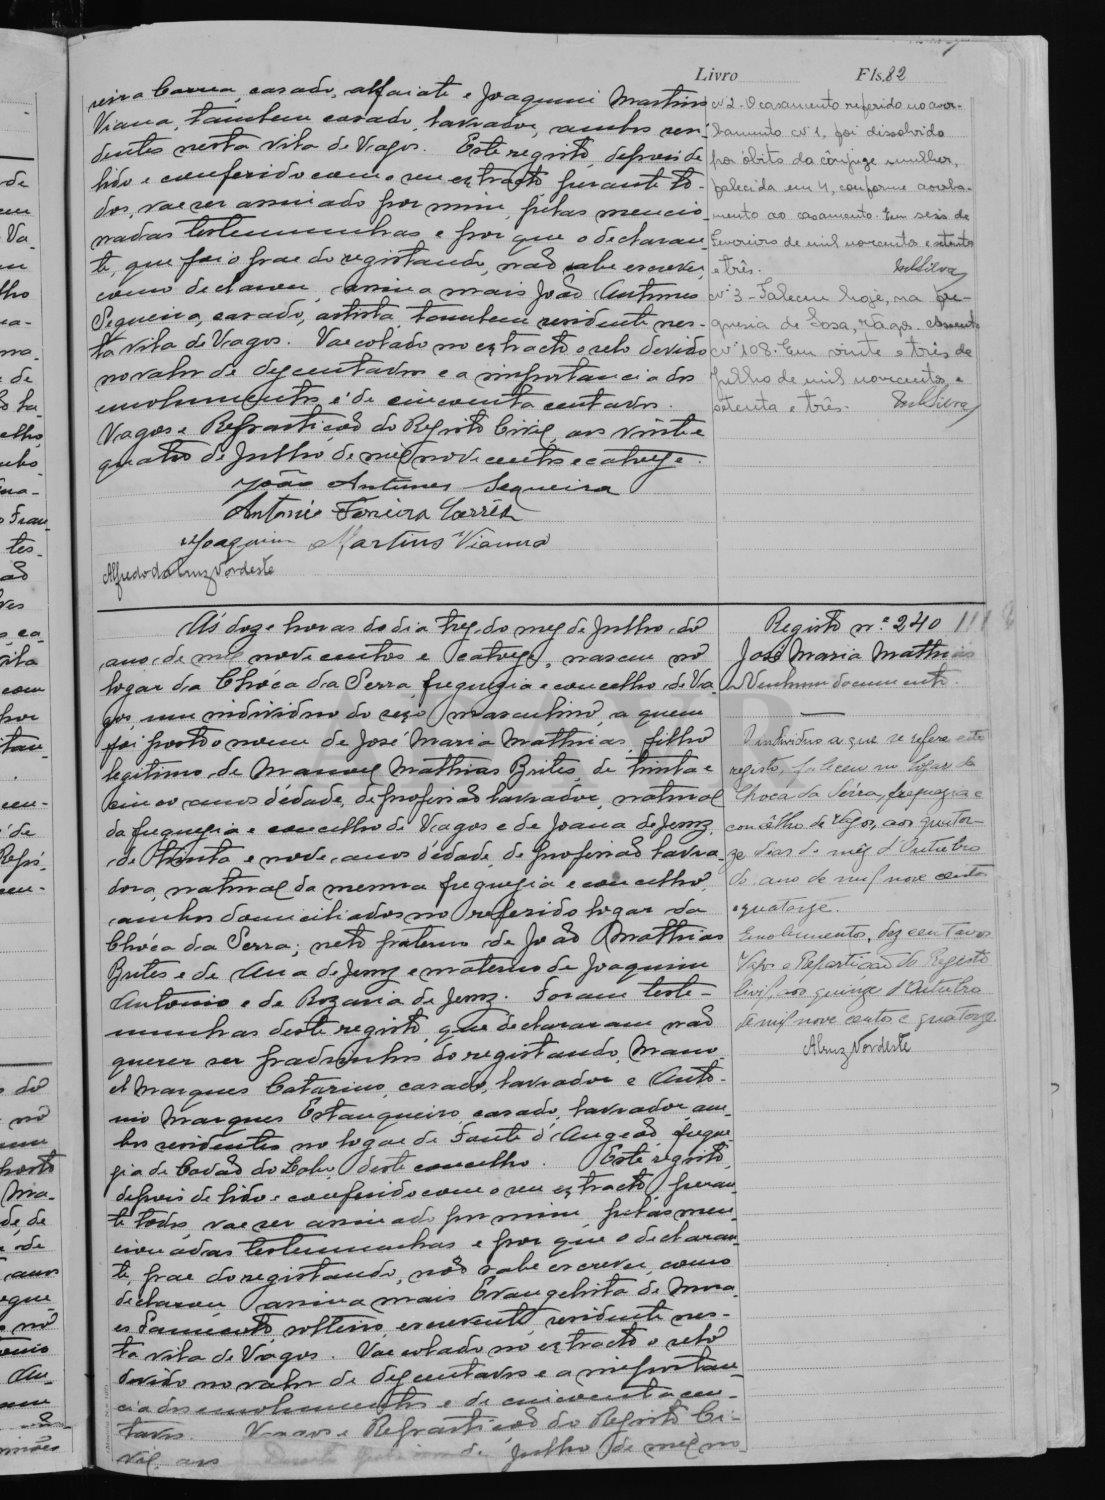 Livro Fls. 82
reira Correa, casado, alfaiate e Joaquim Martins
Vianna, tambem casado, lavrador, ambos resi-
dentes nesta vila de Vagos. Este registo, depois de
lido e conferido com o seu extracto perante to-
dos, vae ser assinado por mim, pelas mencio-
nadas testemunhas e por que o declaran-
te, que foi o pae do registando, não sabe escrever,
como declarou, assina mais João Antunes
Sequeira, casado, artista, tambem residente nes-
ta vila de Vagos. Vae colado no extracto o selo devido
no valor de dez centavos e a importancia dos
emolumentos é de cincoenta centavos.
Vagos e Repartição do Registo Civil, aos vinte e
quatro de Julho de mil novecentos e catorze.
João Antunes Sequeira
Antonio Ferreira Corrêa
Joaquim Martins Vianna
Alfredo da Cruz Nordeste
Nº 2 - O casamento referido no aver-
bamento nº 1, foi dissolvido
por óbito da cônjuge mulher,
falecida em 4, conforme averba-
mento ao casamento. Em seis de
Fevereiro de mil novecentos e setenta
e três.
Nº 3 - Faleceu hoje, na fre-
guesia de Sosa, Vagos. Assento
nº 108. Em vinte e três de
Julho de mil novecentos e
setenta e três.
Ás doze horas do dia trez do mez de Julho do
ano de mil novecentos e catorze, nasceu no
logar da Chóca da Serra, freguezia e concelho de Va-
gos, um individuo do sexo masculino, a quem
foi posto o nome de José Maria Mathias, filho
legitimo de Manoel Mathias Brites, de trinta e
cinco anos d'edade, de profissão lavrador, natural
da freguezia e concelho de Vagos e de Joana de Jesuz,
de trinta e nove anos d'edade, de profissão lavra-
dora, natural da mesma freguezia e concelho,
ambos domiciliados no referido logar da
Chóca da Serra; neto paterno de João Mathias
Brites e de Ana de Jesuz e materno de Joaquim
Antonio e de Rozaria de Jesuz. Foram teste-
munhas deste registo, que declararam não
querer ser padrinhos do registando, Mano-
el Marques Catarino, casado, lavrador e Anto-
nio Marques Estanqueiro, casado, lavrador am-
bos residentes no logar de Fonte d'Angeão, fregue-
zia de Covão do Lobo, deste concelho. Este registo,
depois de lido e conferido com o seu extracto peran-
te todos, vae ser assinado por mim, pelas men-
cionadas testemunhas e por que o declaran-
te, pae do registando, não sabe escrever, como
declarou, assina mais Evangelista de Mora-
es Sarmento, solteiro, escrevente, residente nes-
ta vila de Vagos. Vae colado no extracto o selo
devido no valor de dez centavos e a importan-
cia dos emolumentos é de cincoenta cen-
tavos. Vagos e Repartição do Registo Ci-
vil, aos de Julho de mil no-
Registo nº 240
José Maria Mathias
Nenhum documento.
O individuo a que se refere este
registo, faleceu no logar da
Chóca da Serra, freguezia e
concêlho de Vagos, aos quator-
ze dias do mêz d'Outubro
do ano de mil nove centos
e quatorze.
Emolumentos, dez centavos
Vagos e Repartição do Registo
Civil, aos quinze d'Outubro
de mil nove centos e quatorze
ACruz Nordeste